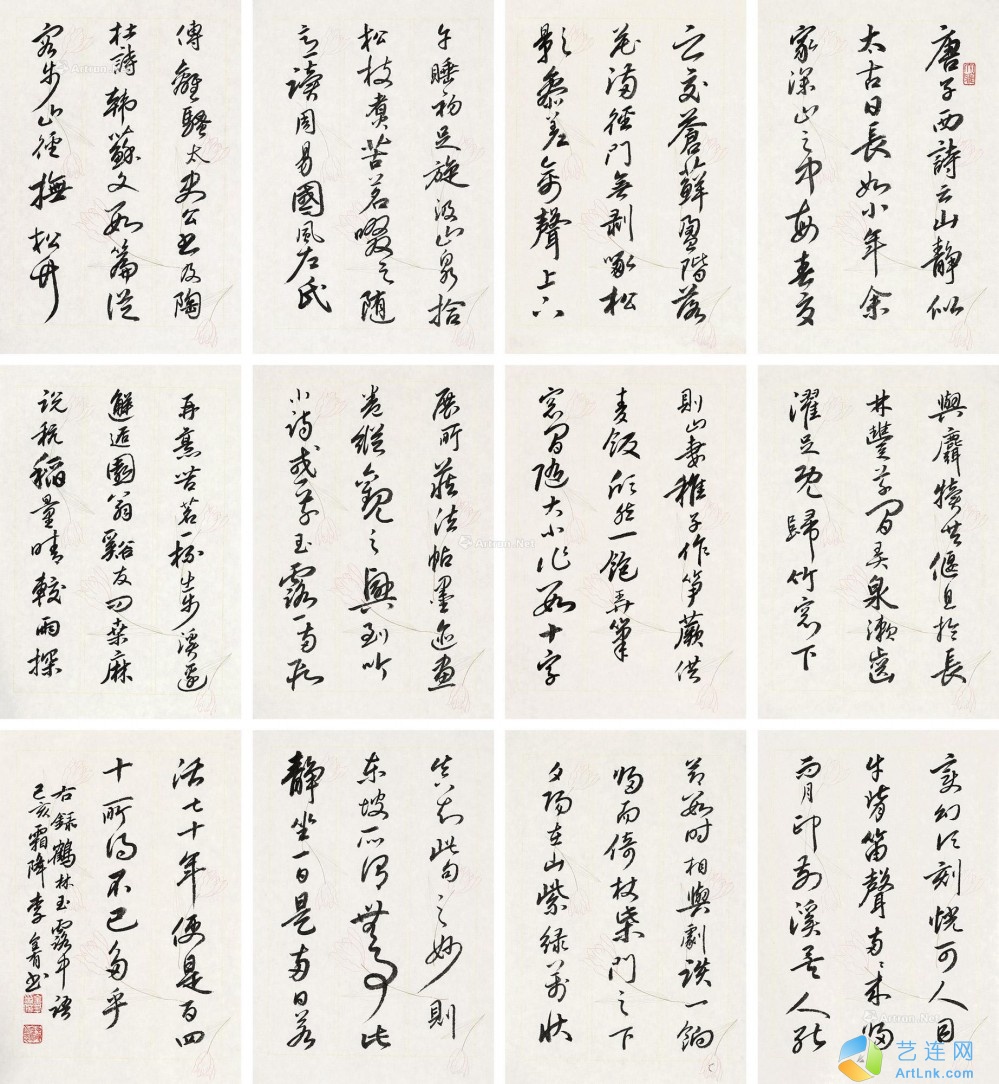 唐子西詩云山靜似
太古日長如小年余
家深山之中每春夏
之交蒼蘚盈階落
花滿徑門無剥啄松
影參差禽聲上下
午睡初足旋汲山泉拾
松枝煮苦茗啜之随
意讀周易國風左氏
傳離騷太史公書及陶
杜詩韩蘇文数篇從
容步山徑撫松竹
與麛犢共偃息於長
林豐草間弄泉漱齒
濯足既歸竹窓下
則山妻稚子作笋蕨供
麦飯欣然一飽弄筆
窓間随大小作数十字
展所藏法帖墨迹畫
卷縱觀之興到吟
小詩或草玉露一兩段
再烹苦茗一杯出步溪邊
邂逅園翁谿友问桑麻
説秔稻量晴較雨探
節数时相與劇談一餉
歸而倚杖柴門之下
夕陽在山紫绿萬状
变幻顷刻恍可人目
牛背笛聲兩兩来歸
而月印前溪矣人能
真知此句之妙則
東坡所謂無事此
靜坐一日是兩日若
活七十年便是百四
十所得不已多乎
右録鶴林玉露中語
己亥霜降李書
Artron.Net
艺连网
ArtLnk.com